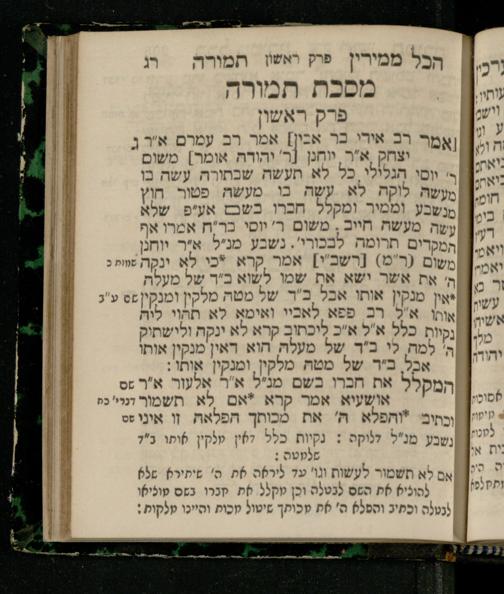 הכל ממירין פרק ראשון תמורה רג
מסכת תמורה
פרק ראשון
[אמר רב אידי בר אבין] אמר רב עמרם א״ר ג
יצחק א״ר יוחנן [ר׳ יהודה אומר] משום
ר׳ יוסי הגלילי כל לא תעשה שבתורה עשה בו
מעשה לוקה לא עשה בו מעשה פטור חוץ
מנשבע וממיר ומקלל חברו בשם אע״פ שלא
עשה מעשה חייב. משום ר׳ יוסי בר״ח אמרו אף
המקדים תרומה לבכורי׳. נשבע מנ״ל א״ר יוחנן
משום (ר״מ) [רשב״י] אמר קרא *כי לא ינקה שמות כ
ה׳ את אשר ישא את שמו לשוא ב״ד של מעלה
*אין מנקין אותו אבל ב״ד של מטה מלקין ומנקין שם ע״ב
אותו א״ל רב פפא לאביי ואימא לא תהוי ליה
נקיות כלל א״ל א״כ ליכתוב קרא לא ינקה ולישתיק
ה׳ למה לי ב״ד של מעלה הוא דאין מנקין אותו
אבל ב״ד של מטה מלקין ומנקין אותו :
המקלל את חברו בשם מנ״ל א״ר אלעזר א״ר שם
אושעיא אמר קרא *אם לא תשמור דברי׳ כח
וכתוב *והפלא ה׳ את מכותך הפלאה זו איני שם
נשבע מנ״ל דלוקה : נקיות כלל דאין מלקין אותו ב״ד
שלמטה :
אם לא תשמור לעשות וגו׳ עד ליראה את ה׳ שיתירא שלא
להוציא את השם לבטלה וכן מקלל את חברו בשם מוציאו
לבטלה וכתיב והפלא ה׳ את מכותך שיטול מכות והיינו מלקות :